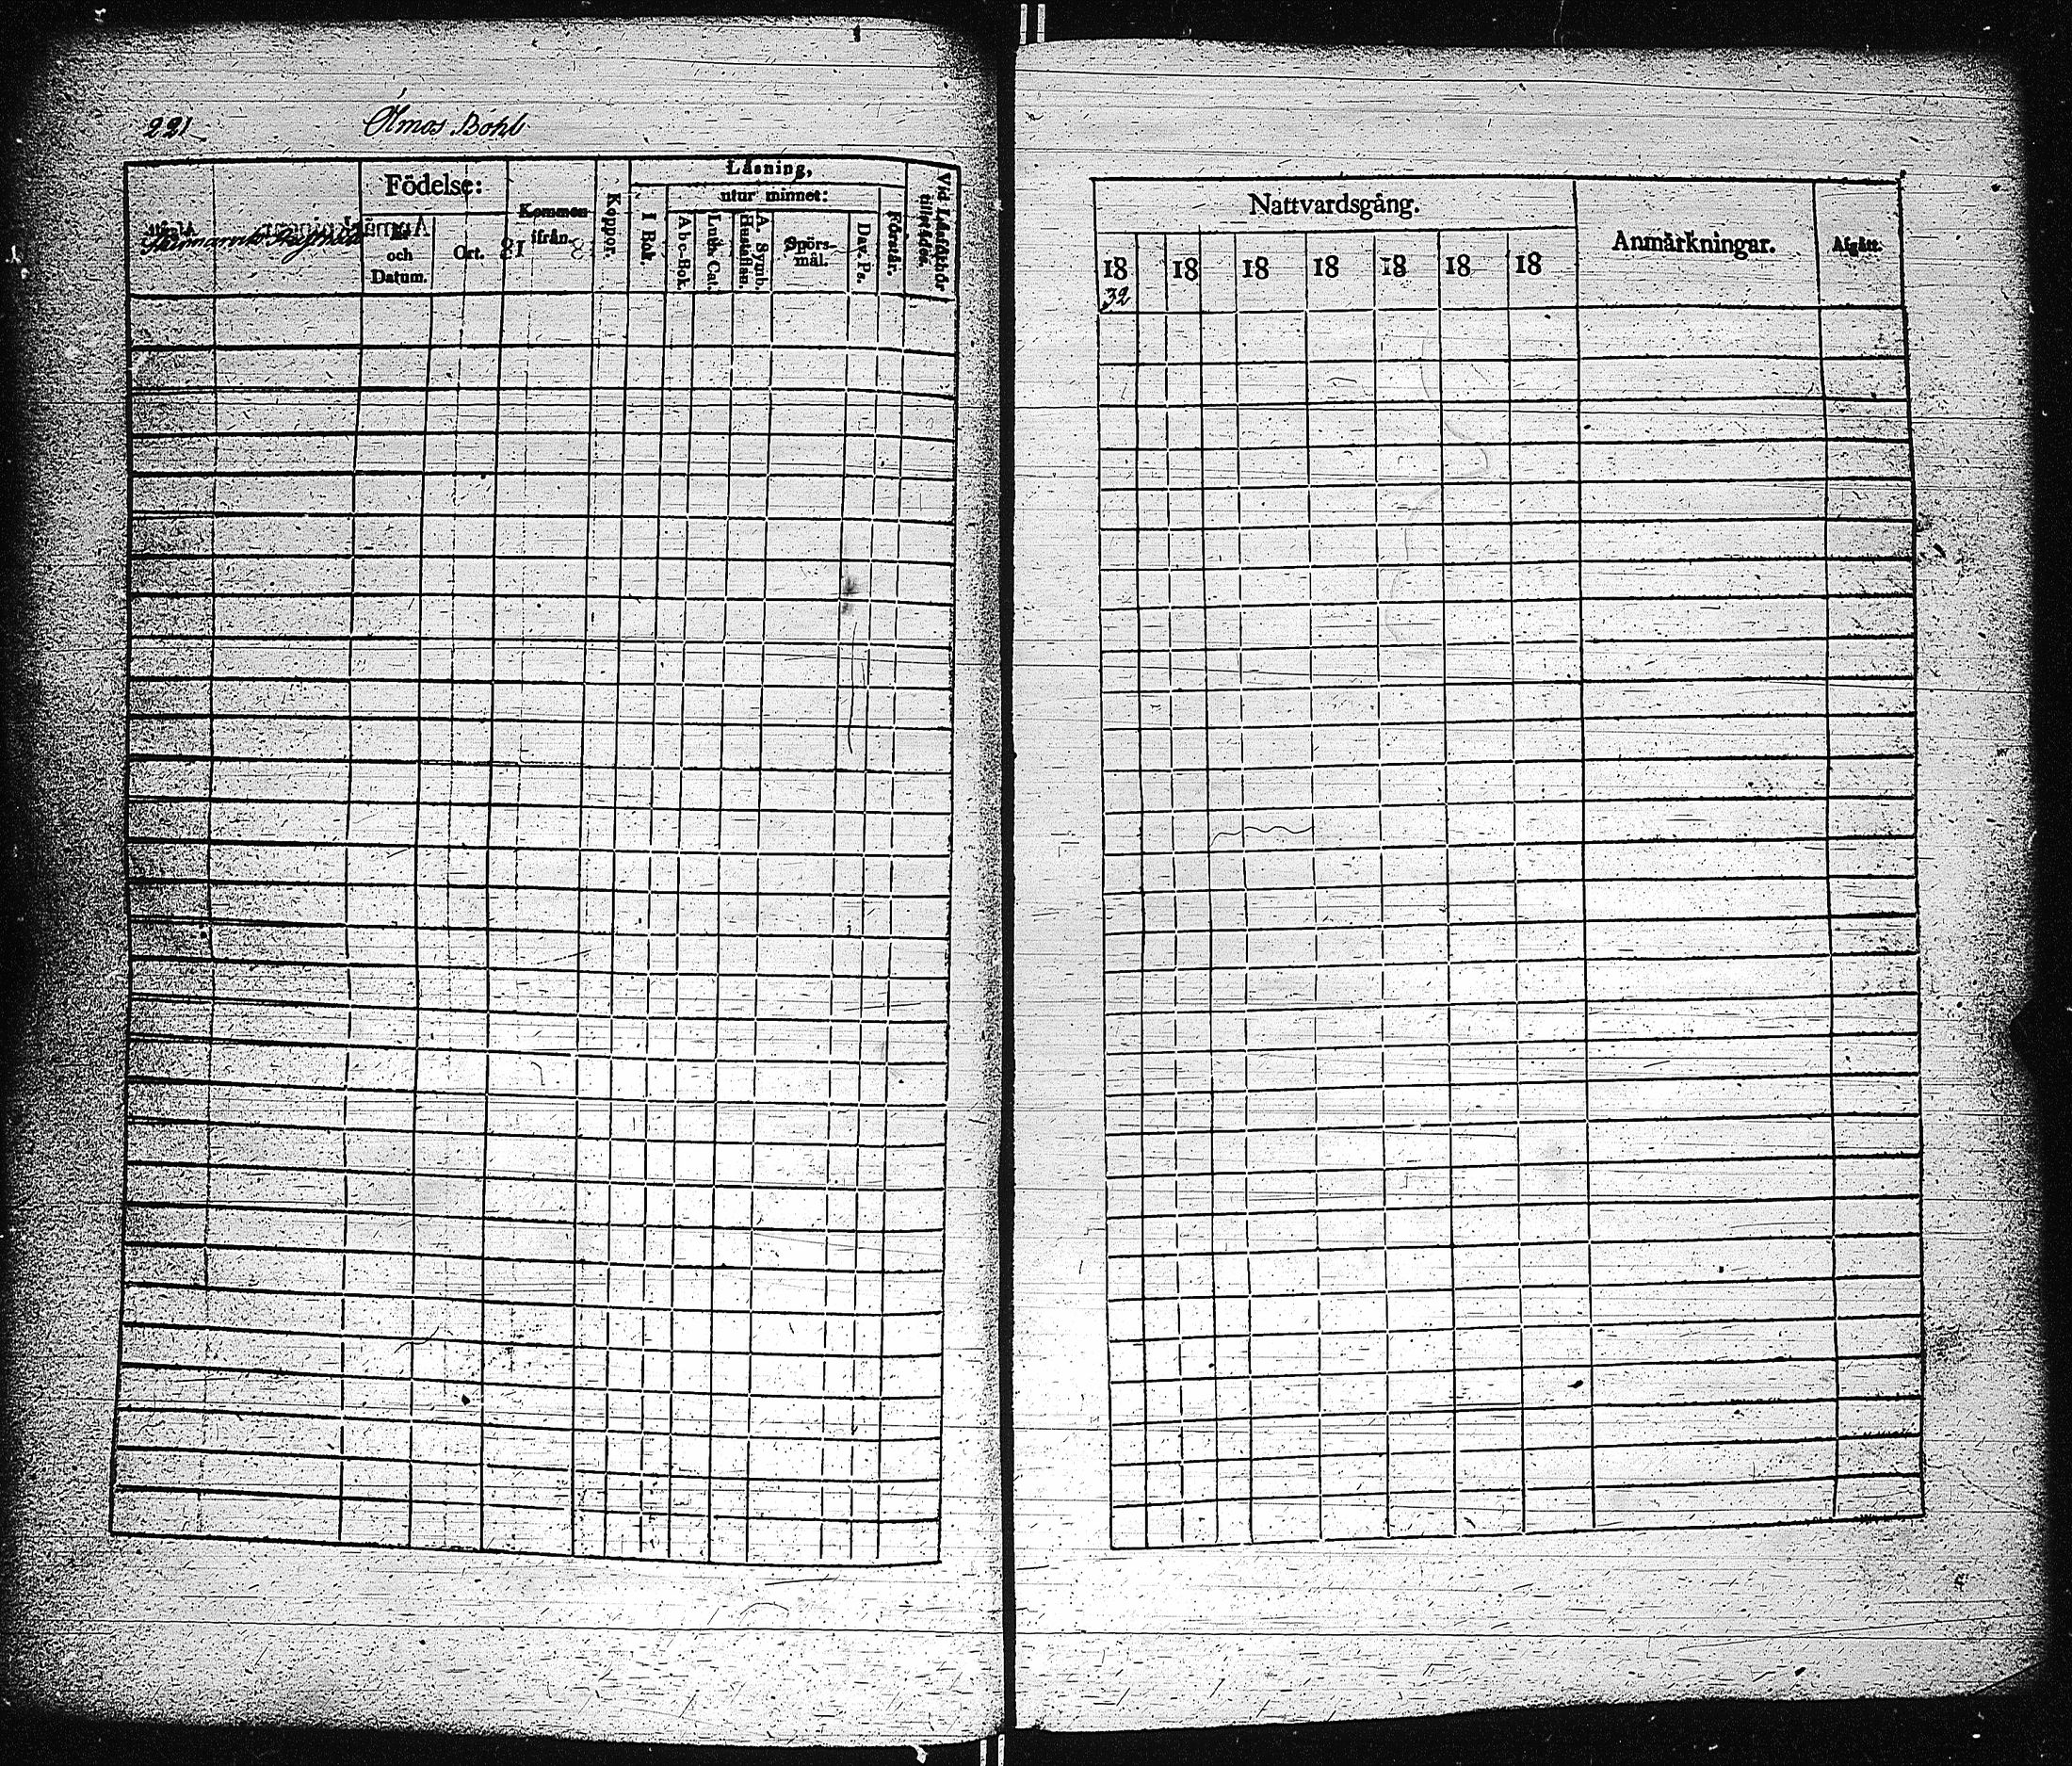 221 Ölmos Bohl
Födelse:
och
Datum.
Ort.
Kommen
ifrån.
Koppor.
Läsning,
utur minnet:
I Bok.
Abc-Bok.
Luth. Cat.
Hustaflan.
A. Symb.
Spörs-
mål.
Dav. Ps.
Förstår.
Vid Läsförhör
tillstädes.
Nattvardsgång.
18 18 18 18 18 18 18
32
Anmärkningar.
Afgått.